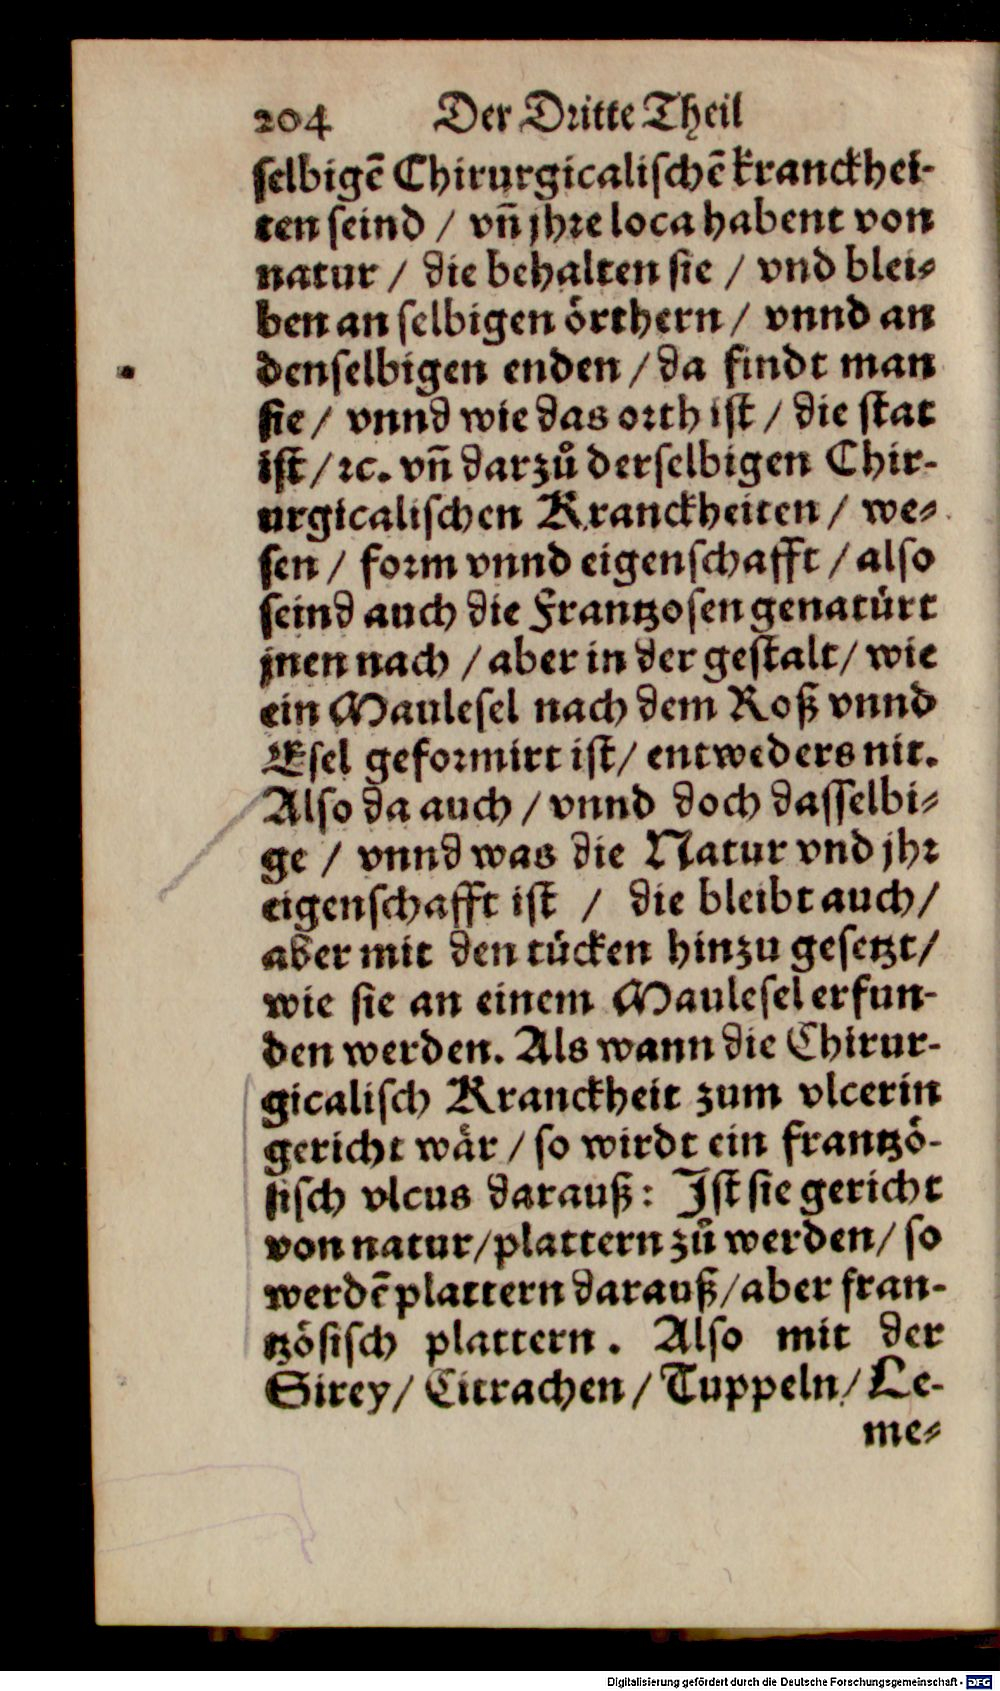 204 Der Dritte Theil
selbigē Chirurgicalischē kranckhei-
ten seind / vñ jhre loca habent von
natur / die behalten sie / vnd blei-
ben an selbigen örthern / vnnd an
denselbigen enden / da findt man
sie / vnnd wie das orth ist / die stat
ist / ꝛc. vñ darzů derselbigen Chir-
urgicalischen Kranckheiten / we-
sen / form vnnd eigenschafft / also
seind auch die Frantzosen genatürt
jnen nach / aber in der gestalt / wie
ein Maulesel nach dem Roß vnnd
Esel geformirt ist / entweders nit.
Also da auch / vnnd doch dasselbi-
ge / vnnd was die Natur vnd jhr
eigenschafft ist / die bleibt auch /
aber mit den tücken hinzu gesetzt /
wie sie an einem Maulesel erfun-
den werden. Als wann die Chirur-
gicalisch Kranckheit zum vlcerin
gericht wär / so wirdt ein frantzö-
sisch vlcus darauß: Ist sie gericht
von natur / plattern zů werden / so
werdē plattern darauß / aber fran-
tzösisch plattern. Also mit der
Sirey / Citrachen / Tuppeln / Le-
me-
Digitalisierung gefördert durch die Deutsche Forschungsgemeinschaft - DFG